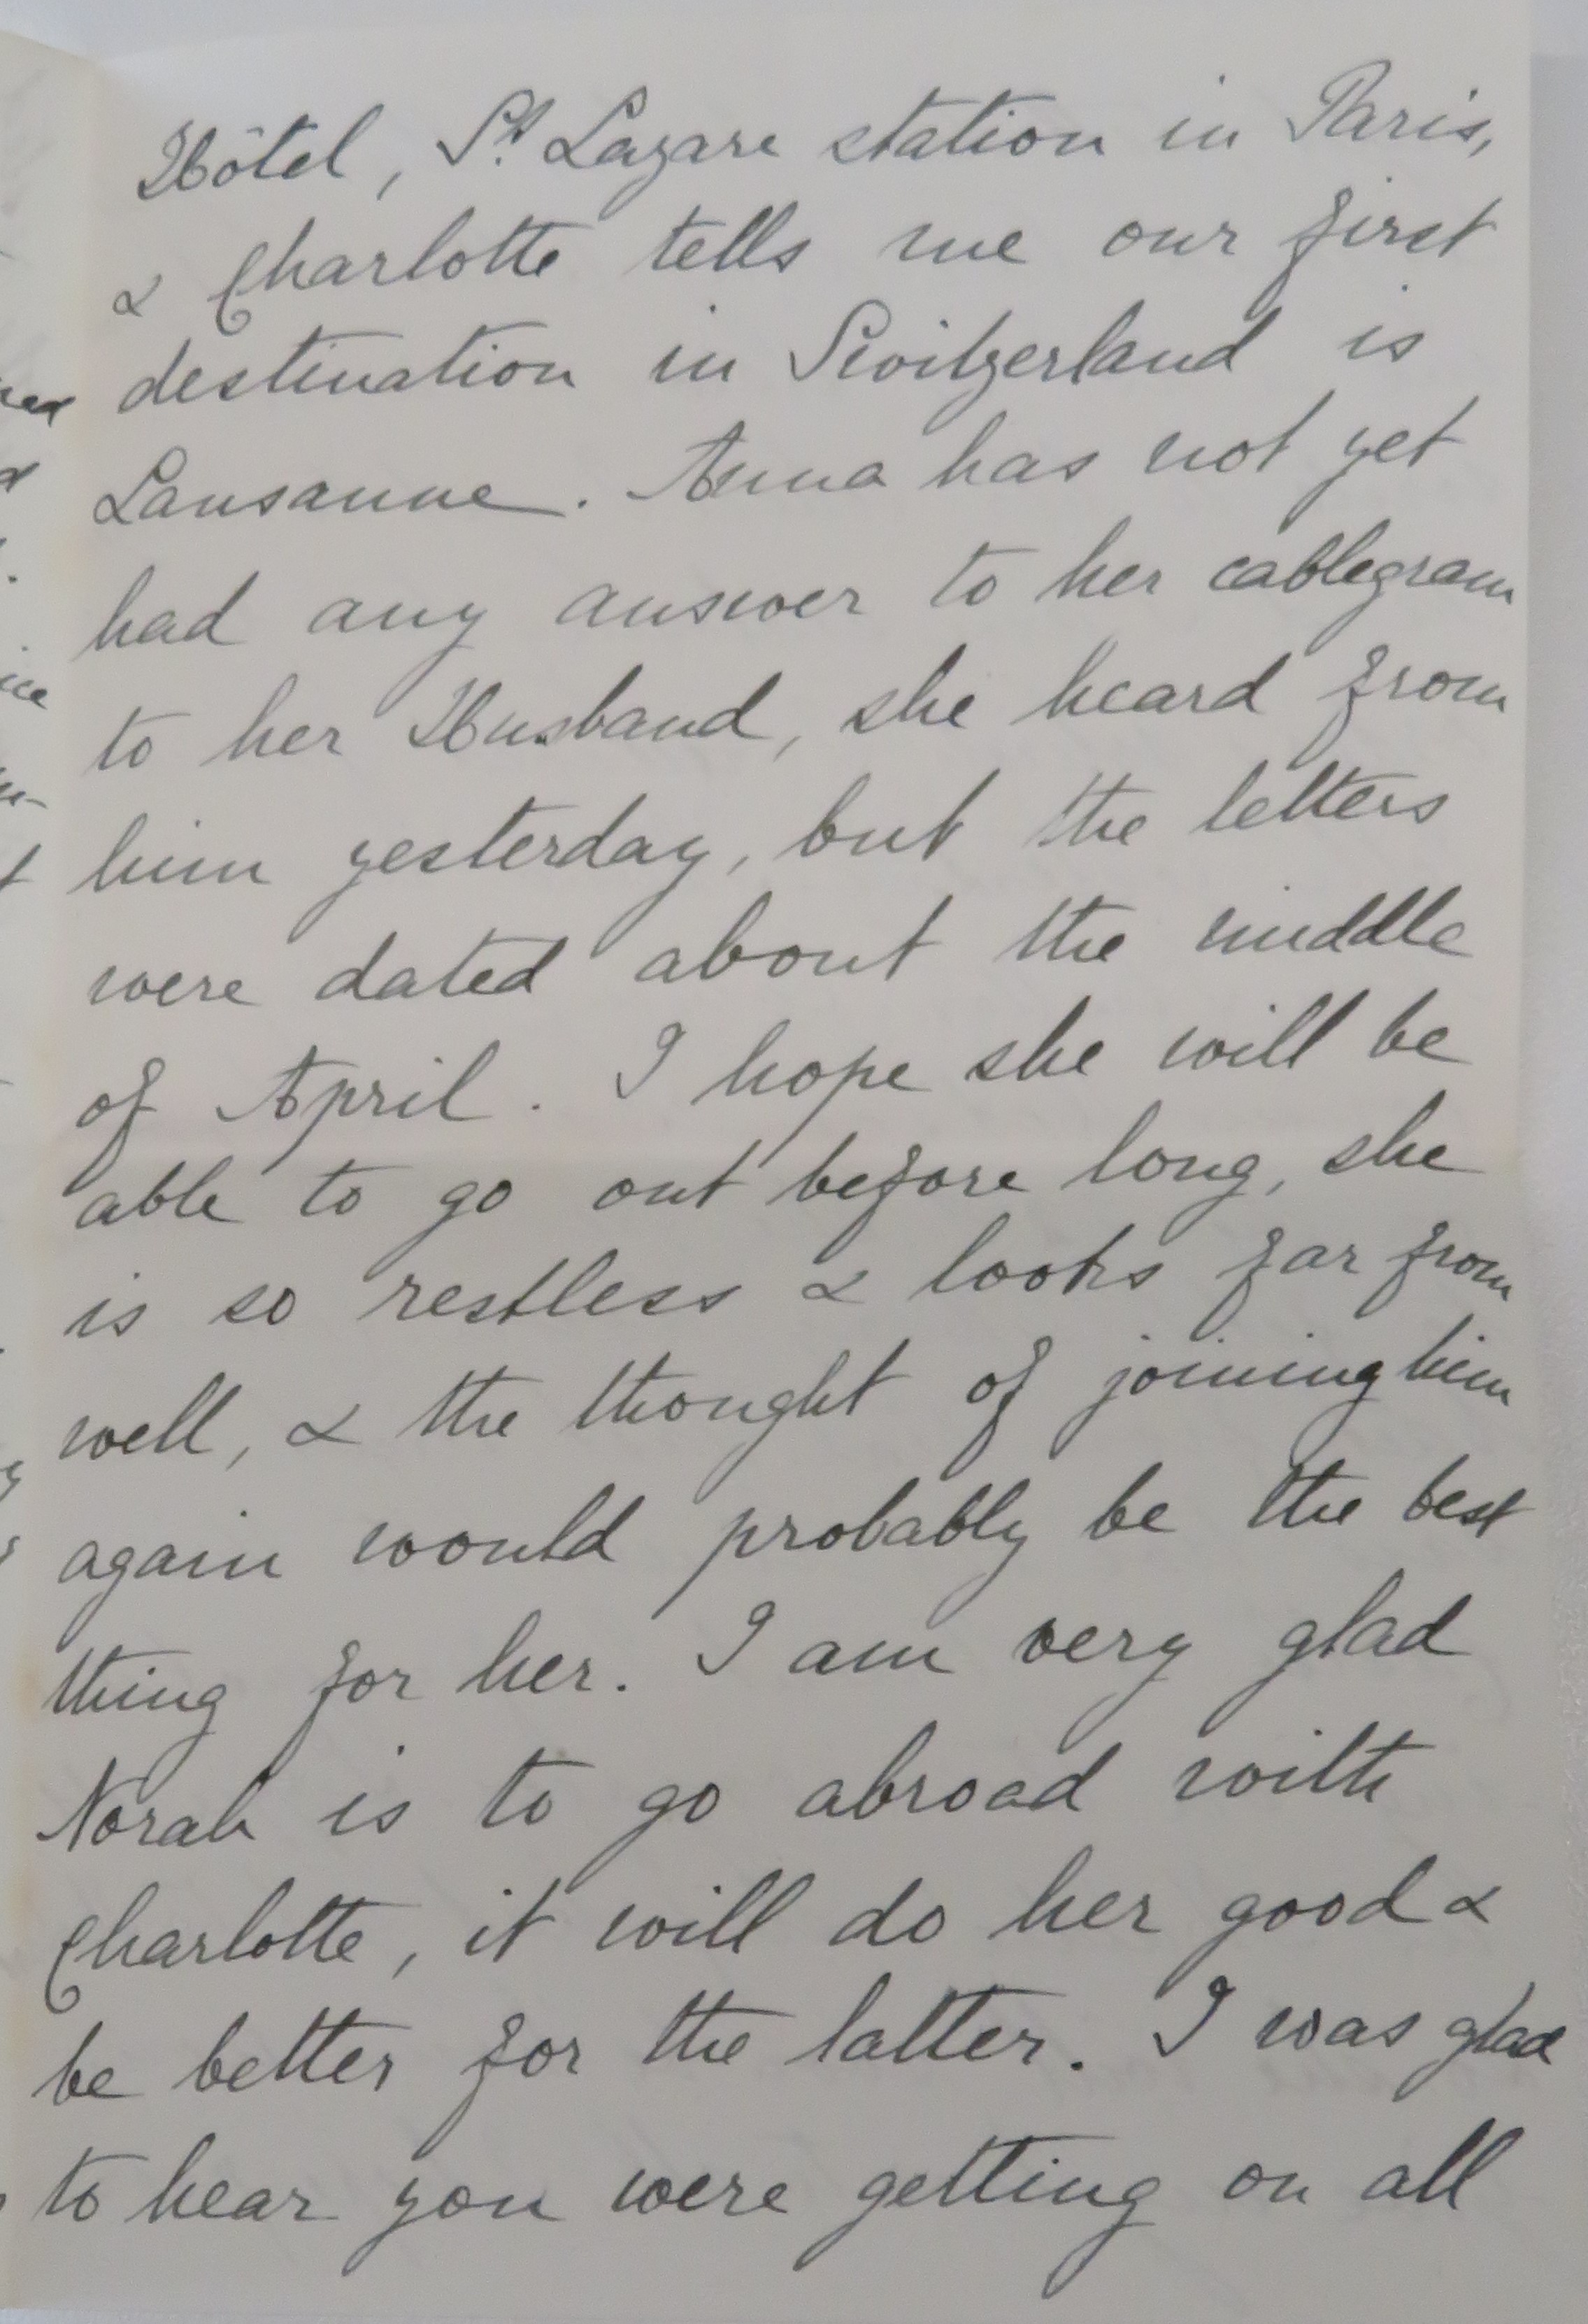 Hôtel, St. Lazare station in Paris,
& Charlotte tells me our first
destination in Switzerland is
Lausanne. Anna has not yet
had any answer to her cablegram
to her Husband, she heard from
him yesterday, but the letters
were dated about the middle
of April. I hope she will be
able to go out before long, she
is so restless & looks far from
well, & the thought of joining him
again would probably be the best
thing for her. I am very glad
Norah is to go abroad with
Charlotte, it will do her good &
be better for the latter. I was glad
to hear you were getting on all